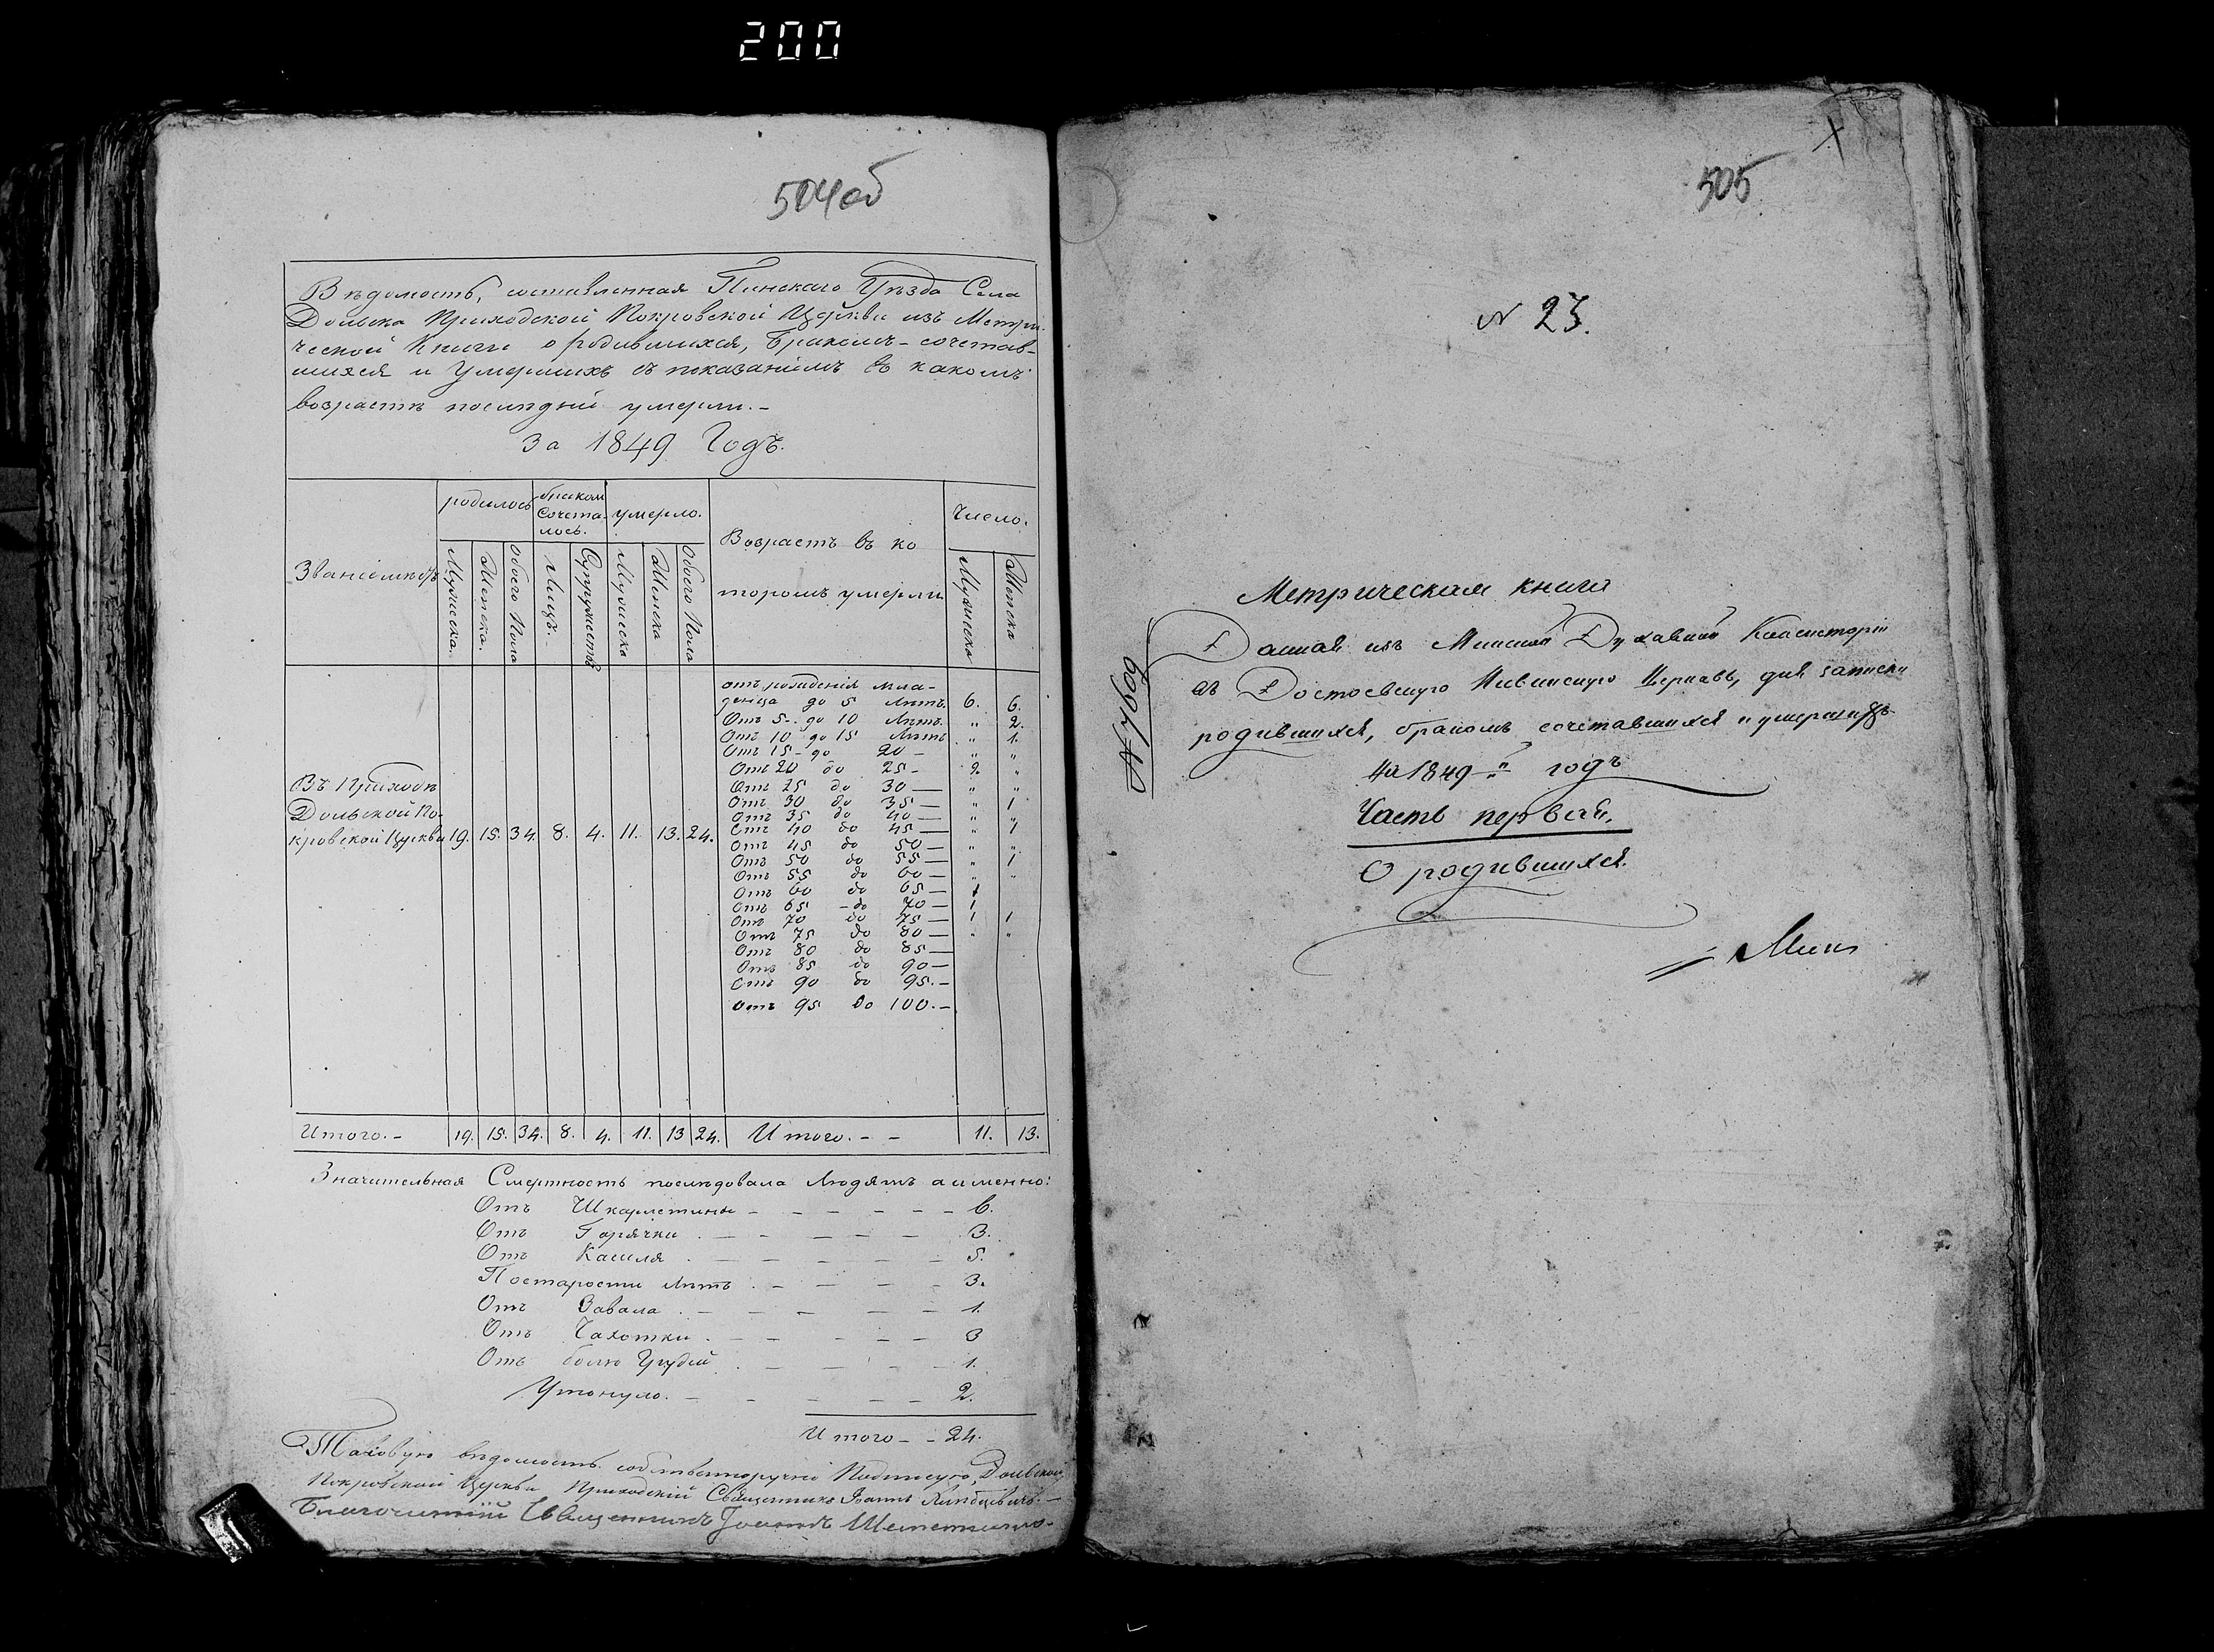 200
504об
Вѣдомость, составленная Пинскаго Уѣзда Села
Дольска Приходской Покровской Церкви изъ Метри-
ческой Книги о родившихся, Бракомъ-сочетав-
шихся и Умершихъ съ показаніемъ въ какомъ
возрастѣ послѣдніи умерли.-
За 1849 Годъ.
родилось
бракомъ
Сочета-
лось.
умерло.
Возрастъ въ ко
торомъ умерли
Число.
Мужеска.
Женска.
Обоего Пола
Лицъ.
Супружествъ
Мужеска
Женска
Обоего Пола
Мужеска
Женска
отъ рожденія мла-
денца до 5 Лѣтъ. 6. 6.
Отъ 5-. до 10 Лѣтъ. " 2.
Отъ 10 до 15 Лѣтъ " 1.
Отъ 15- до 20 - " "
Отъ 20 до 25- 2. "
Отъ 25 до 30 — " "
Отъ 30 до 35 — " 1
Отъ 35 до 40 — " "
Отъ 40 до 45 — " 1
Отъ 45 до 50 — " "
Отъ 50 до 55 — " 1
Отъ 55 до 60 — " "
Отъ 60 до 65 — 1
Отъ 65 - до 70 — 1
Отъ 70 до 75 — 1 1
Отъ 75 до 80 — " "
Отъ 80 до 85 —
Отъ 85 до 90 —
Отъ 90 до 95.-
Отъ 95 до 100.-
Въ Приходѣ
Дольской По-
кровской Церкви 19. 15. 34. 8. 4. 11. 13. 24.
Итого.- 19. 15. 34. 8. 4. 11. 13 24. Итого. - - 11. 13.
Значительная Смертность послѣдовала Людямъ а именно:
Отъ Шкарлетины - - - - - - 6.
Отъ Горячки . - - - - - 3.
Отъ Кашля . - - - - - 5.
Постарости Лѣтъ . - - - - 3.
Отъ Завала . - - - - 1.
Отъ Чахотки . - - - - - 3
Отъ болю Грудей . - - - - 1.
Утонуло. - - - - - 2.
Итого - - 24.
Таковую вѣдомость собственноручно Подписую, Дольской
Покровской Церкви Приходскій Священникъ Іоаннъ
Благочинный Священникъ Іоаннъ
505
N 23.
Метрическая книга
Данная изъ Минской Духовной Консисторіи
въ Достоевскую Пинскую Церковь, для записки
родившихся, бракомъ сочетавшихся и умершихъ
на 1849-й годъ
Часть первая.
О родившихся.
N 7669
Мин